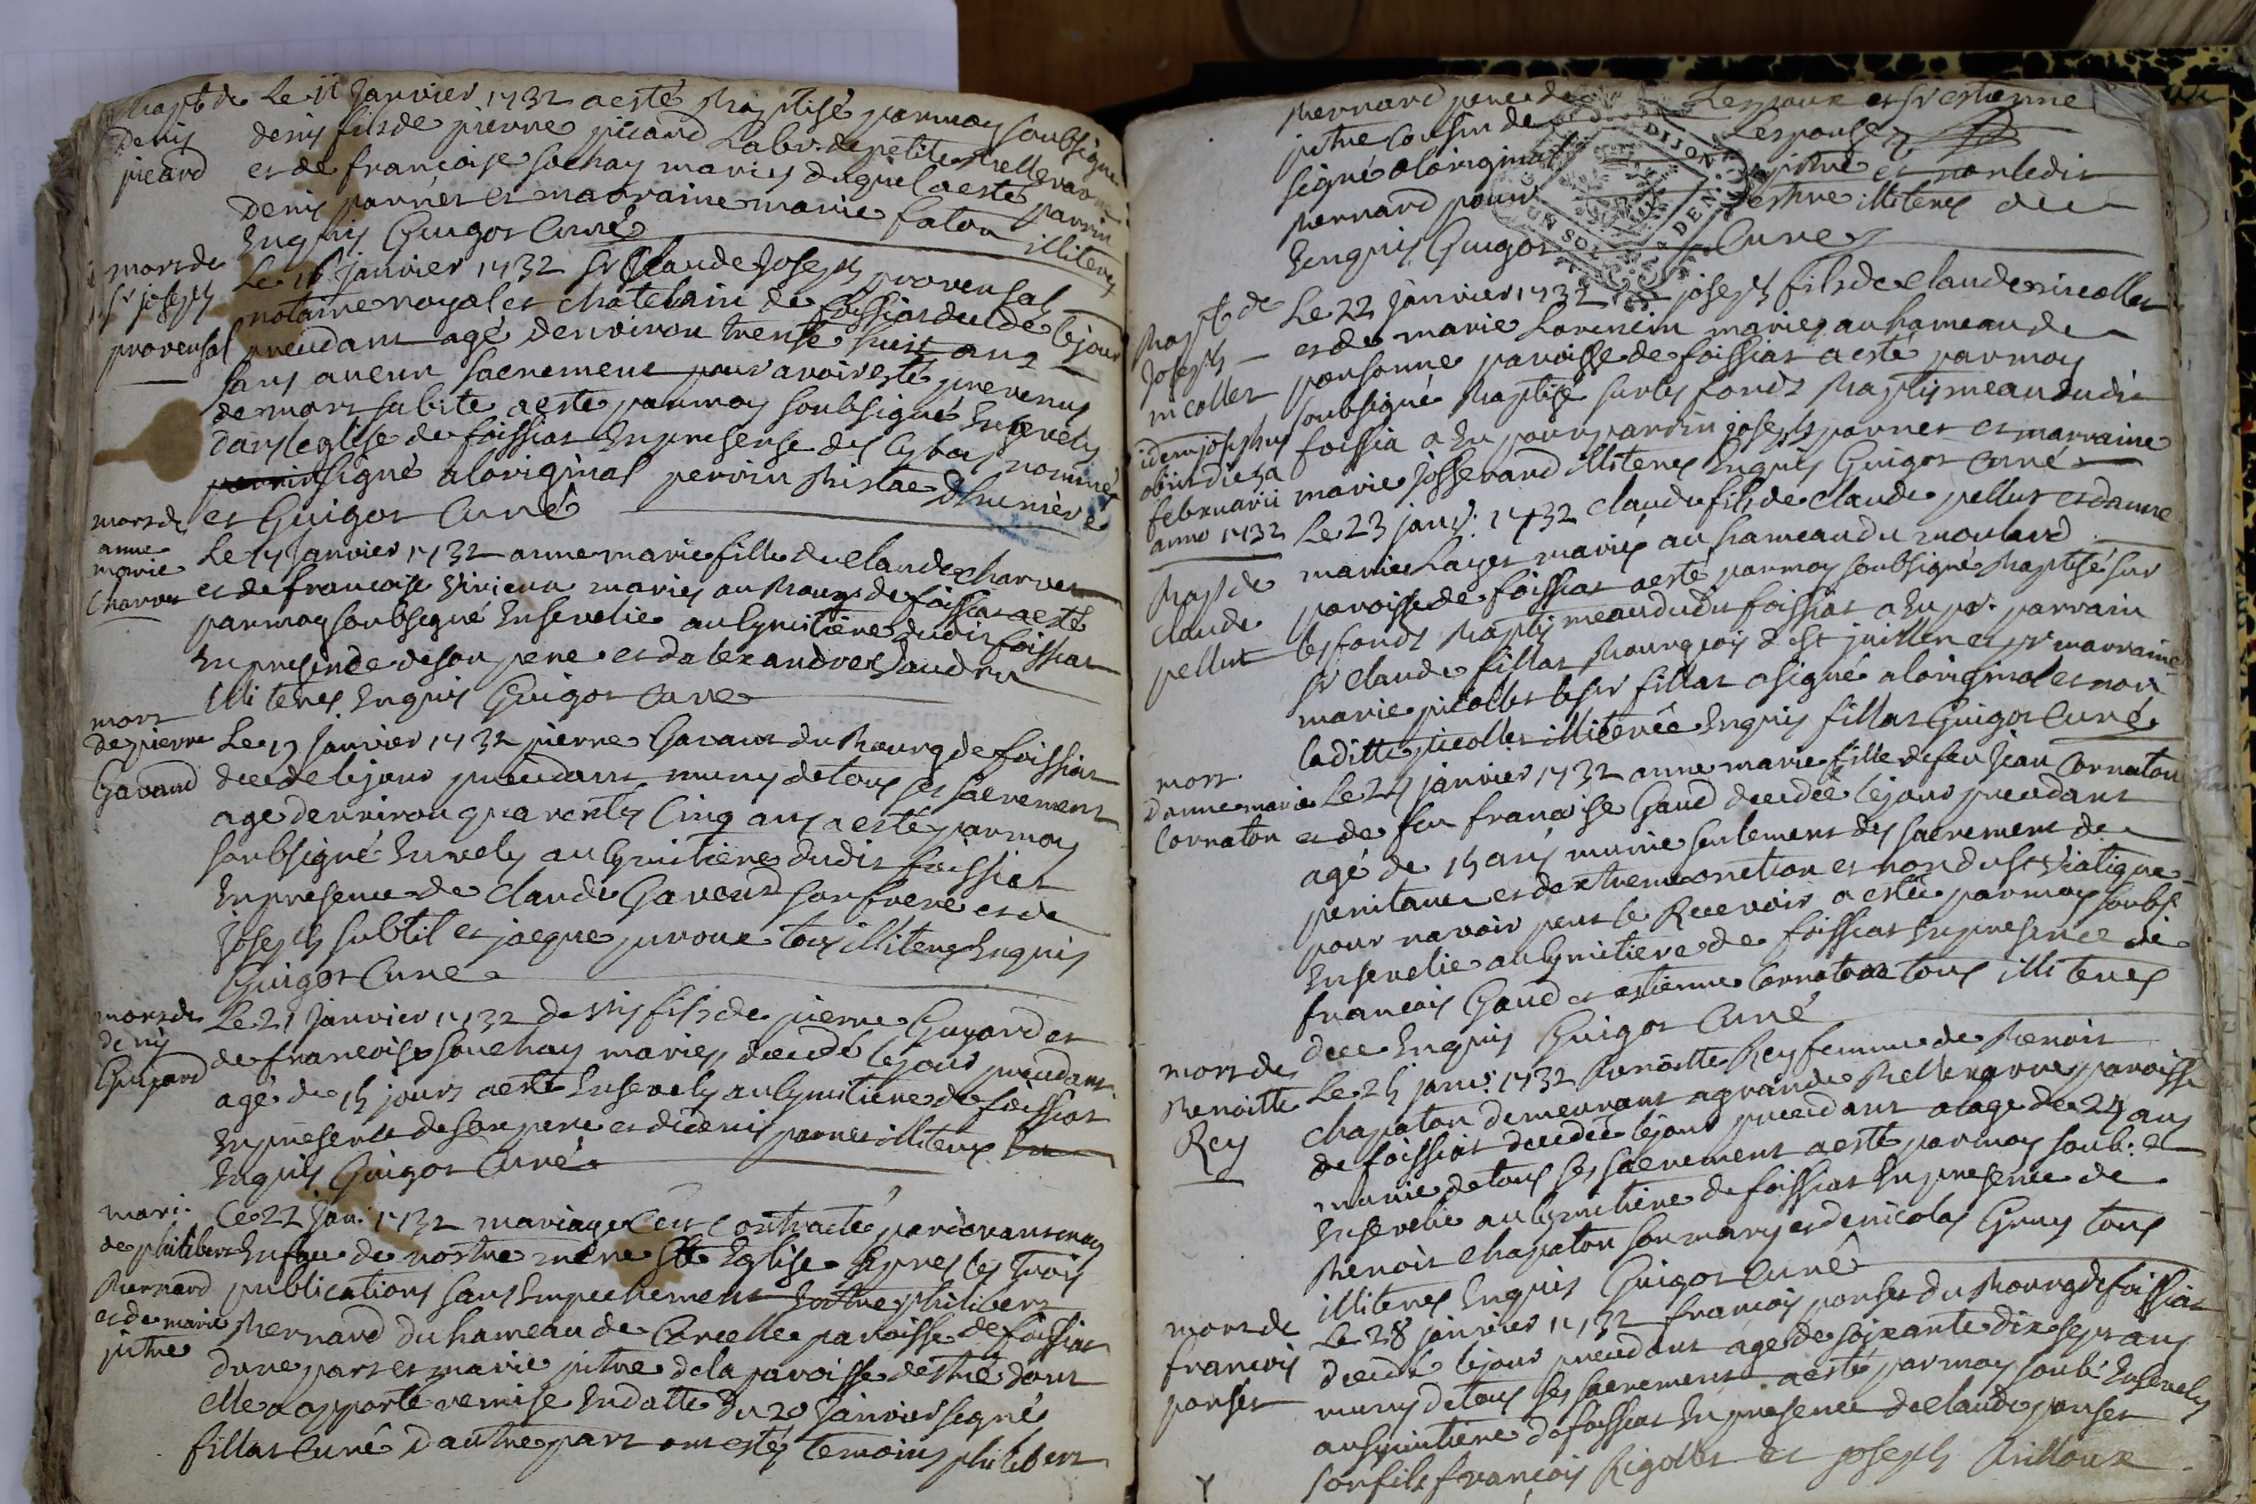 Bapt. de
Denis
picard
Le 11 Janvier 1732 a esté Baptisé par moy soubsigné
denis fils de pierre picard Labr. de petite Bellevavre
et de francoise sochay mariés duquel a esté parrin
Denis pannet et marraine marie faton illiterés
Enquis Guigot Curé
mort de
sr joseph
provensal
Le 16 Janvier 1732 sr Claude Joseph provensal
notaire royal et chatelain de foissiat decedé le jour
precedant agé denviron trente huit ans
sans aucun sacrement pour avoir esté prevenu
de mort subite a esté par moy soubsigné Ensevely
dans leglise de foissiat En presense des Cybas nommé
signé a loriginal perrin
et Guigot Curé
mort de
anne
marie
Charvet
Le Janvier 1732 anne marie fille de claude charvet
et de francoise Vivieux mariés au Bourg de foissiat a esté
par moy soubsigné Ensevelie au Cymitière dudit foissiat
En presende de son pere et dalexandre
illiterés Enquis Guigot Curé
mort
de pierre
Gavand
Le 19 Janvier 1732 pierre Gavant du Bourg de foissiat
decedé le jour precedant muny de tous ses sacrement
agé denviron quarente Cinq ans a esté par moy
soubsigné Ensevely au Cymitière dudit foissiat
En presence de claude Gavend son frere et de
Joseph subtil et jacque puroux tous illiterés Enquis
Guigot Curé
mort de
denis
Guyard
Le 21 Janvier 1732 denis fils de pierre Guyard et
de francoise souchay mariés, decedé le jour precedant
agé de 15 jours a esté Ensevely au Cymitière de foissiat
En presence de son pere et de denis pannet illiterés
Enquis Guigot Curé
mari.
de philibert
Bernard
et de marie
pitre
Le 22 Jan. 1732 mariage cest Contracté par devant moy
En face de nostre mere Ste Eglise apres les trois
publications sans Empechement Entre philibert
Bernard du hameau de Corcelle paroisse de foissiat
dune part et marie pitre de la paroisse destré dont
elle a apporté remise En datte du 20 Janvier signé
fillat Curé dautre part ont estés temoins philibert
Bernard pere de Lespoux et sr estienne
pitre Cousin de Lespouse
signé a loriginal pitre et non ledit
Bernard pour estre illiterés de ce
Enquis Guigot Curé
DIJON
UN SOL DEN
Bapt. de
Joseph
nicollet
idem josephus
obiit die 2a
februarii
anno 1732
Le 22 Janvier 1732 joseph fils de claude nicollet
et de marie Lorencin mariés au hameau de
ponsonne paroisse de foissiat a esté par moy
soubsigné Baptisé sur les fonds Baptismeau dudit
foissia a Eu pour parrin joseph pannet et marraine
marie josserand illiterés Enquis Guigot Curé
Bapt de
claude
pellut
Le 23 janv. 1732 claude fils de claude pellut et danne
marie Layet mariés au hameau du moulard
paroisse de foissiat a esté par moy soubsigné Baptisé sur
les fonds Baptismeau dudit foissiat a Eu pr. parrain
sr claude fillat Bourgeois de st juillien et pr marraine
marie picollet le sr fillat a signé a loriginal et non
laditte picollet illiterée Enquis fillat Guigot Curé
mort
danne marie
Cornaton
Le 24 janvier 1732 anne marie fille de feu Jean Cornaton
et de feu francoise Gaud decedée le jour precedant
agé de 15 ans munie seulement des sacrement de
penitance et dextreme onction et non du st Viatique
pour navoir peut le Recevoir a estée par moy soubs.
Ensevelie au Cymitiere de foissiat En presence de
francois Gaud et estienne Cornaton tous illiterés
de ce Enquis Guigot Curé
mort de
Benoitte
Rey
Le 25 janv. 1732 Benoitte Rey femme de Benoit
chapaton demeurant a grande Bellevavre paroisse
de foissiat decedée le jour precedant a lage de 24 ans
munie de tous ses sacrement a esté par moy soub.
Ensevelie au Cymitière de foissiat En presence de
Benoit chapaton son mary et de nicolas Gruy tous
illiterés Enquis Guigot Curé
mort de
francois
ponset
Le 28 janvier 1732 francois ponset du Bourg de foissiat
decedé le jour precedant agé de soixante dix sept ans
muny de tous ses sacrement a esté par moy soub. Ensevely
au Cymitière de foissiat En presence de claude ponset
son fils francois Rigollet et joseph